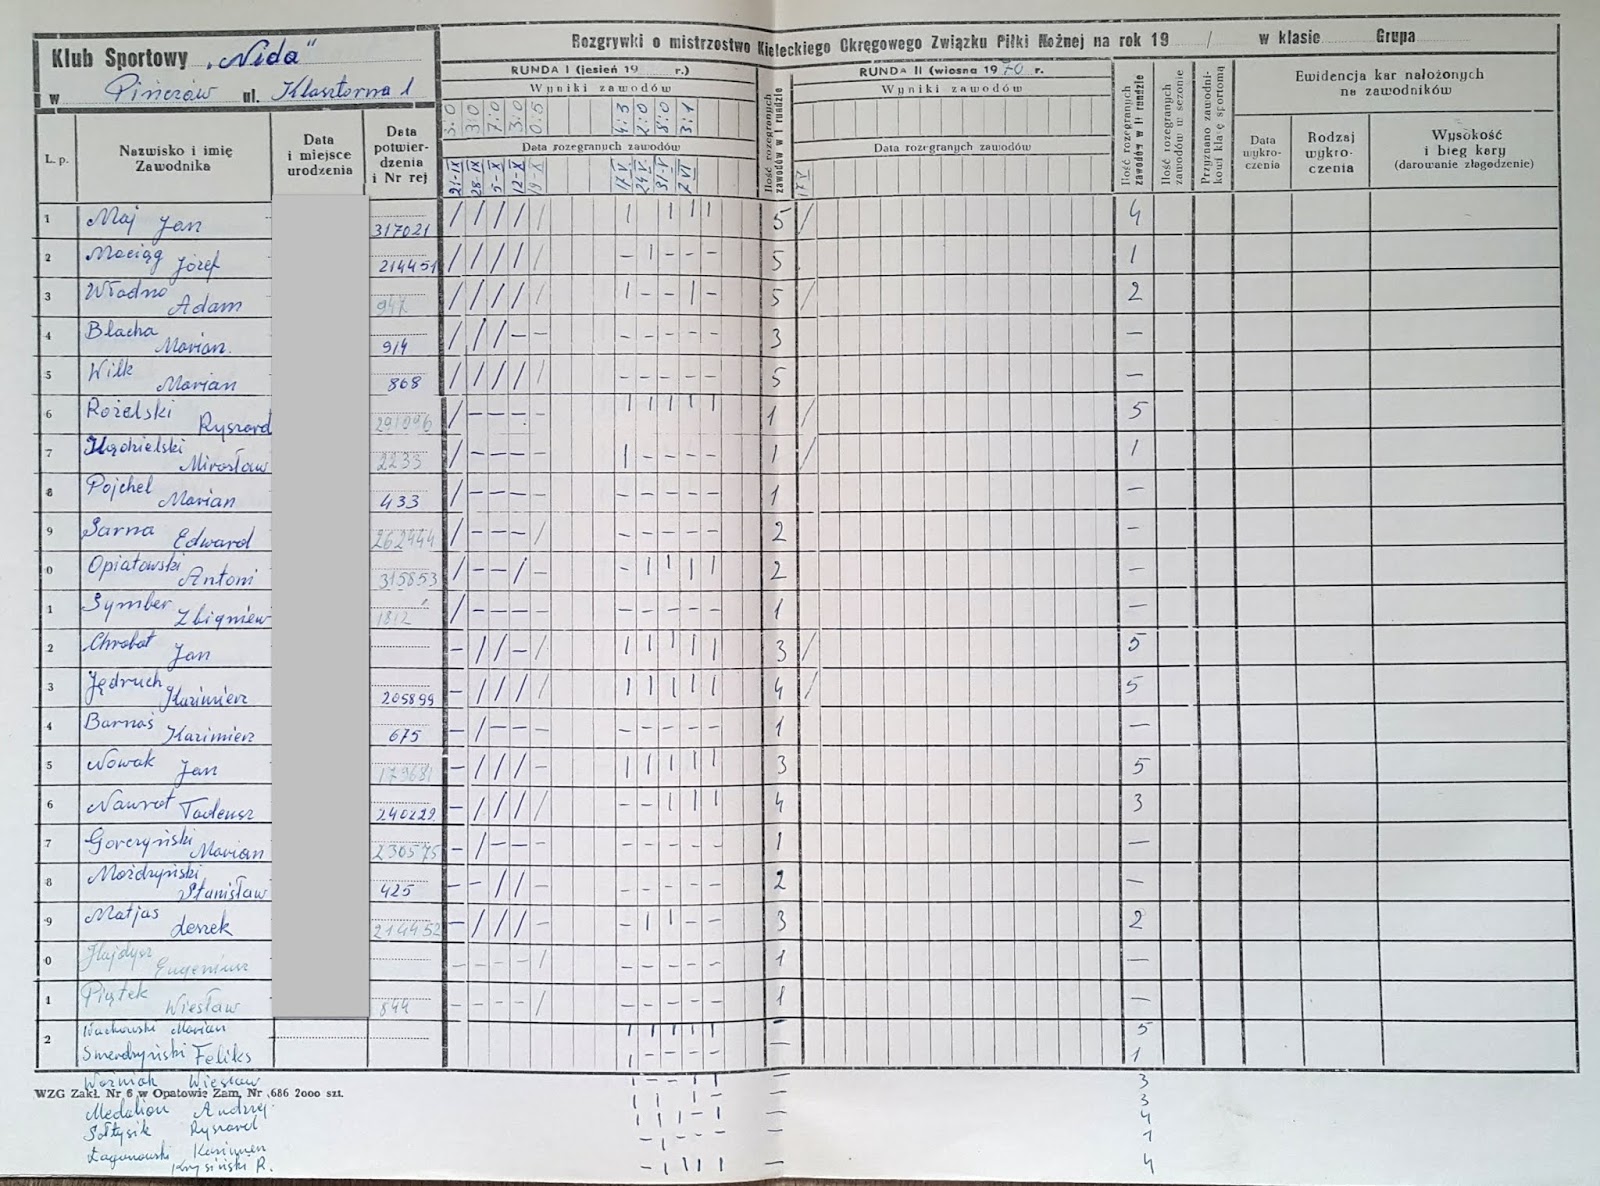 Klub Sportowy „Nida"
w Pińczów ul. Klasztorna 1
Rozgrywki o mistrzostwo Kieleckiego Okręgowego Związku Piłki Nożnej na rok 19 / w klasie Grupa
RUNDA I (jesień 19 r.)
Wyniki zawodów
3:0 3:0 7:0 3:0 0:5 4:3 2:0 8:0 3:1
Data rozegranych zawodów
21-IX 28-IX 5-X 12-X 19-X 17 V. 24 V. 31-V 7 VI
Ilość rozegranych zawodów w I rundzie
RUNDA II (wiosna 1970 r.
Wyniki zawodów
Data rozegranych zawodów
17 V
Ilość rozegranych zawodów w II rundzie
Ilość rozegranych zawodów w sezonie
Przyznano zawodnikowi klasę sportową
Ewidencja kar nałożonych na zawodników
Data wykroczenia
Rodzaj wykroczenia
Wysokość i bieg kary (darowanie złagodzenie)
L. p.
Nazwisko i imię Zawodnika
Data i miejsce urodzenia
Data potwierdzenia i Nr rej
1 Maj Jan 317021 / / / / / | | | | 5 / 4
2 Maciąg Józef 214451 / / / / / – | – – – 5 1
3 Władno Adam 947 / / / / / | – – | – 5 / 2
4 Blacha Marian 914 / / / – – – – – – – 3 –
5 Wilk Marian 868 / / / / / – – – – – 5 –
6 Rozelski Ryszard / – – – – | | | | | 1 / 5
7 Kądzielski Mirosław 2233 / – – – – | – – – – 1 / 1
8 Pojchel Marian 433 / – – – – – – – – – 1 –
9 Sarna Edward 262444 / – – – / – – – – – 2 –
0 Opiatowski Antoni 315853 / – – / – – | | | | 2 –
1 Symber Zbigniew 1812 / – – – – – – – – – 1 –
2 Chrobot Jan – / / – / | | | | | 3 / 5
3 Jędruch Kazimierz 205899 – / / / / | | | | | 4 / 5
4 Barnaś Kazimierz 675 – / – – – – – – – – 1 –
5 Nowak Jan 179681 – / / / – | | | | | 3 5
6 Nawrot Tadeusz 240229 – / / / / – – | | | 4 3
7 Gorczyński Marian 230575 – / – – – – – – – – 1 –
8 Moździyński Stanisław 425 – – / / – – – – – – 2 –
9 Matjas Leszek 214452 – / / / – – | | – – 3 2
0 Hajdysz Eugeniusz – – – – / – – – – – 1 –
1 Piątek Wiesław 844 – – – – / – – – – – 1 –
2 Wackowski Marian | | | | | – 5
Smerdzyński Feliks | – – – – – 1
Woźniak Wiesław | – – | | – 3
WZG Zakł. Nr 6 w Opatowie Zam. Nr 686 2000 szt.
Medalion Andrzej 3
Sołtysik Ryszard 4
Łagonowski Kazimierz 1
Krysiński R. – | | | | – 4